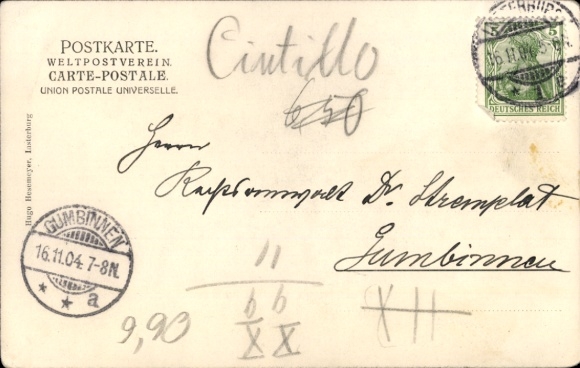 POSTKARTE.
WELTPOSTVEREIN.
CARTE-POSTALE.
UNION POSTALE UNIVERSELLE.
Cintillo
650
5 5
DEUTSCHES REICH
16.11.04
* a
Hugo Hesemeyer, Insterburg
Herrn
Rechtsanwalt Dr. Stremplat
Gumbinnen
GUMBINNEN
16.11.04. 7-8N.
* * a
11
b b
X X
X 11
9,90